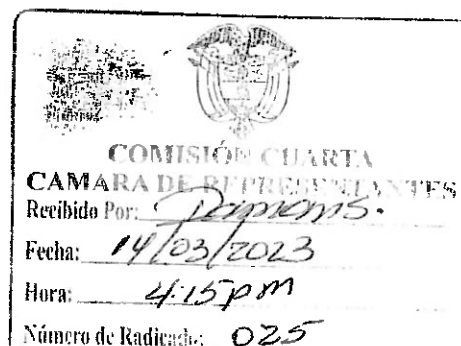 COMISIÓN CUARTA
CAMARA DE REPRESENTANTES
Recibido Por:
Fecha: 14/03/2023
Hora: 4:15 pm
Número de Radicado: 025